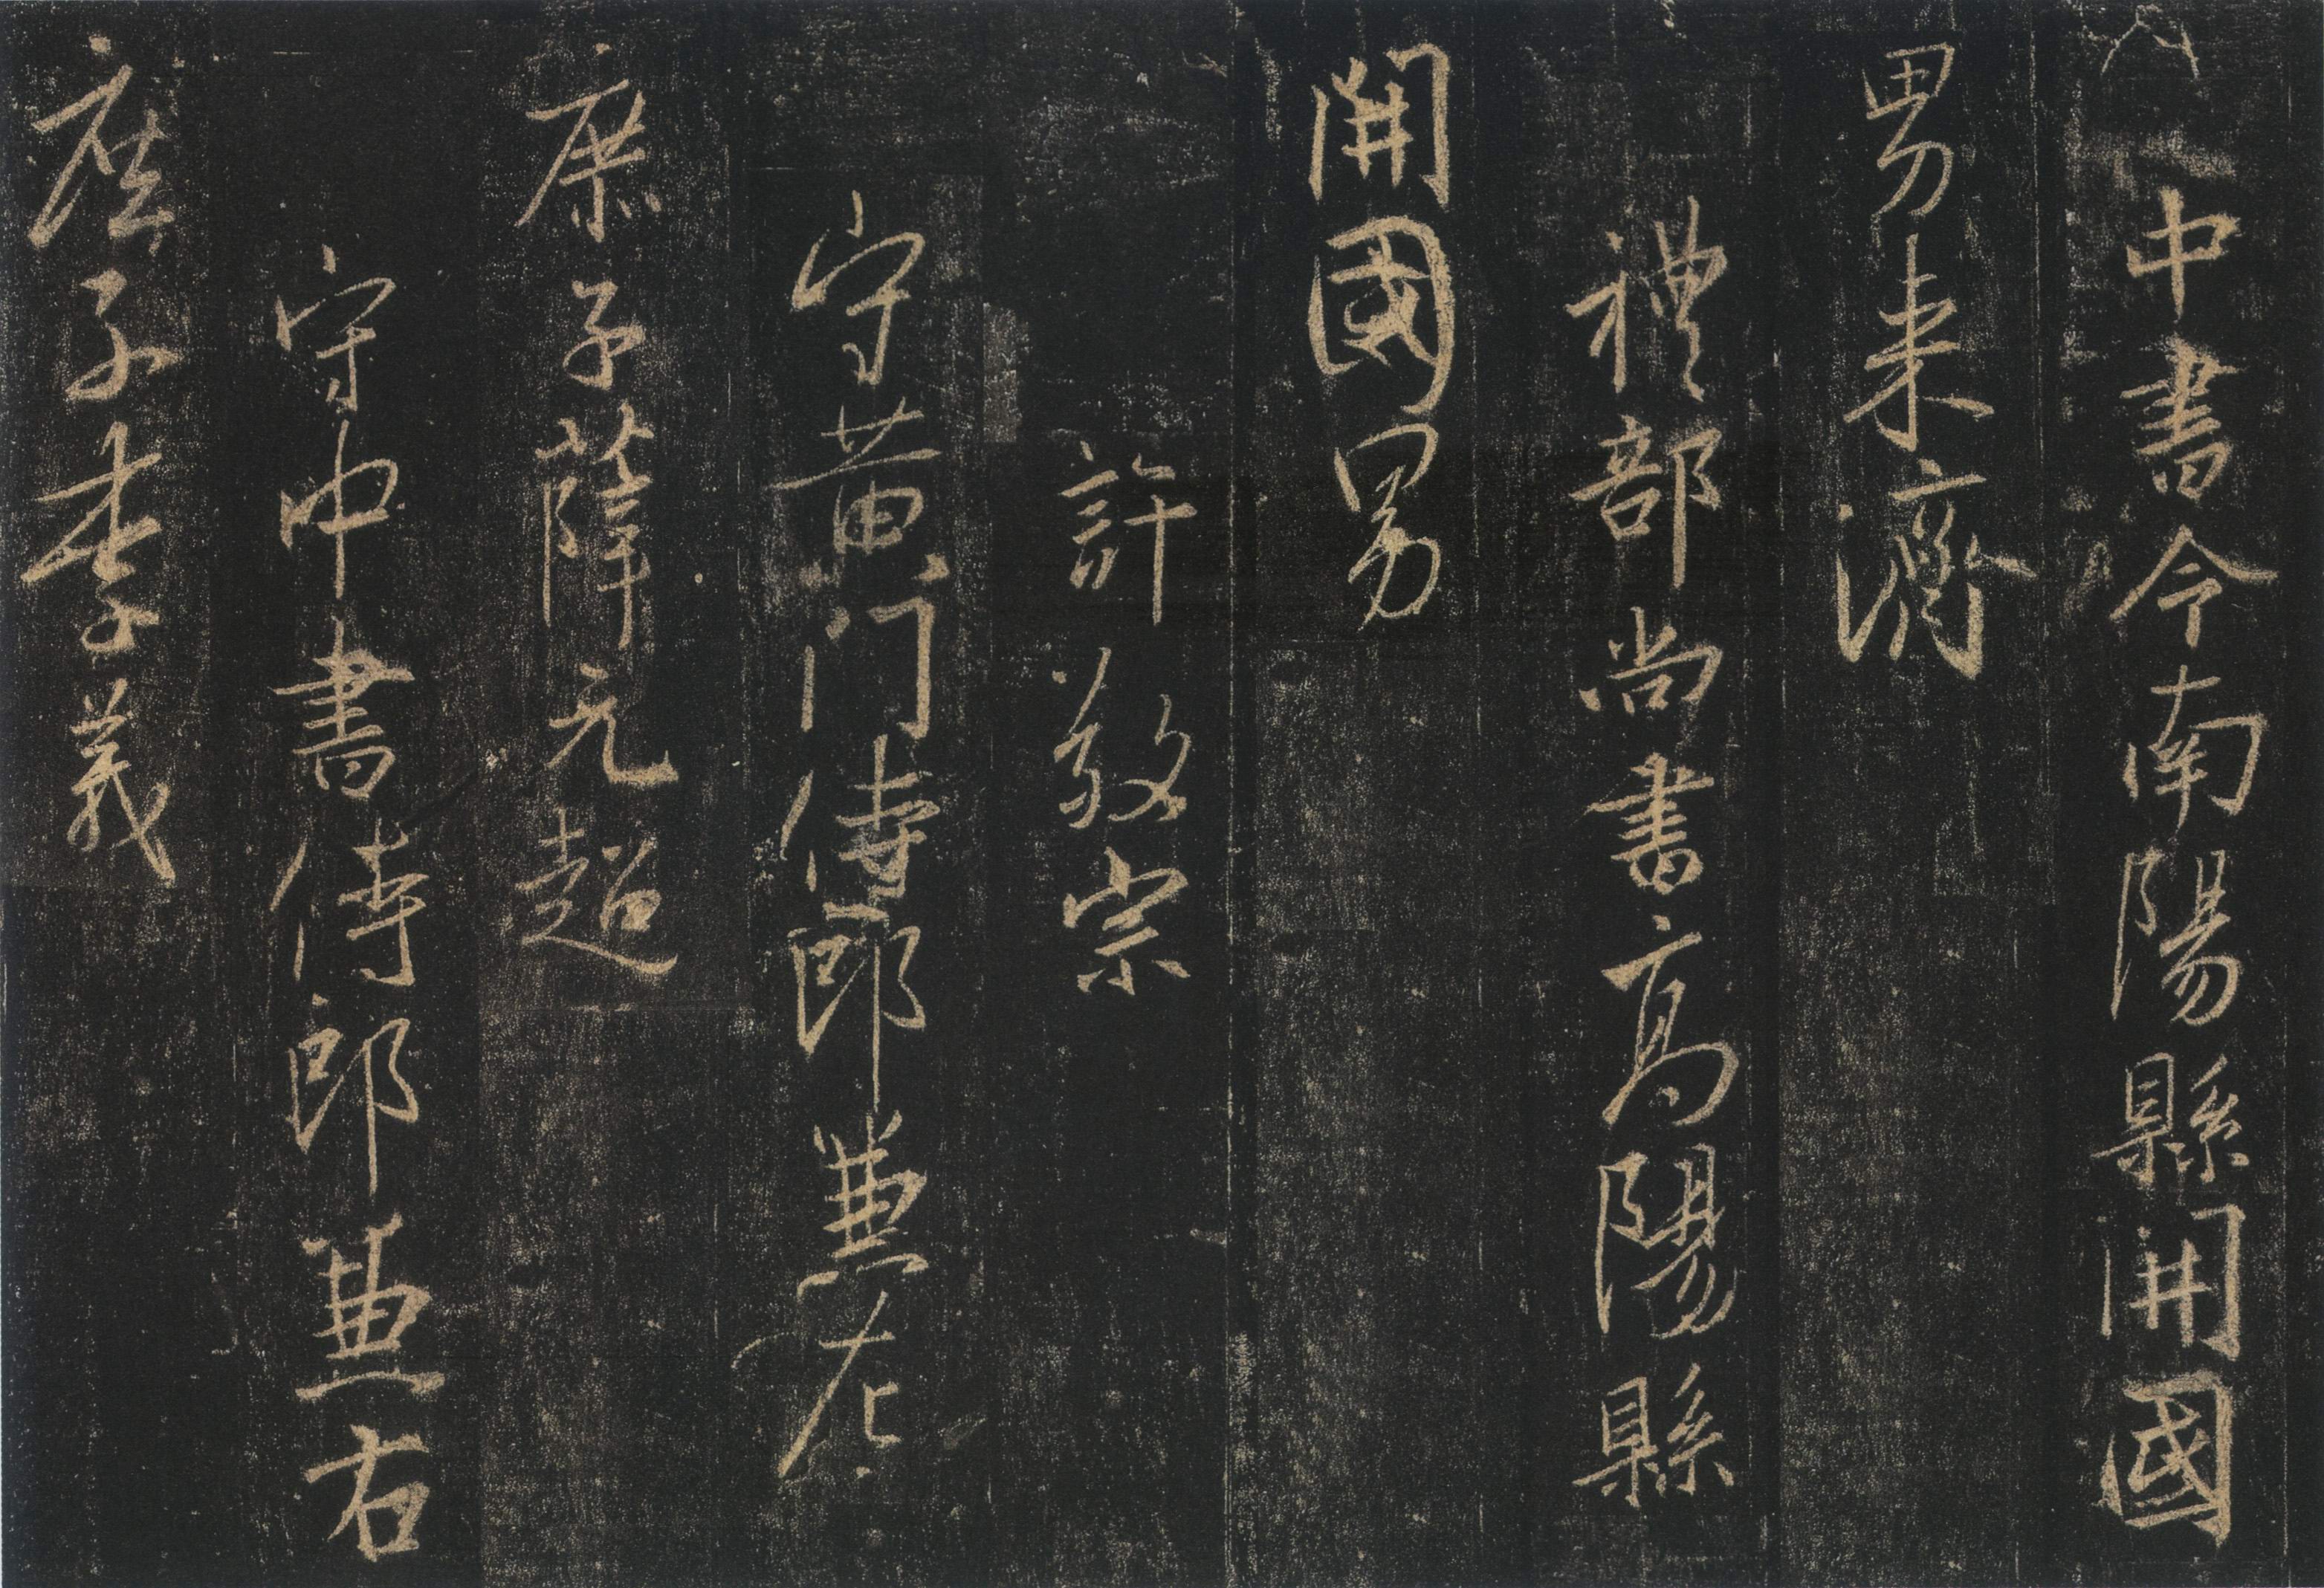 中書令南陽縣開國
男来濟
禮部尚書高陽縣
開國男
許敬宗
守黄门侍郎兼左
庶子薛元超
守中書侍郎兼右
庶子李義